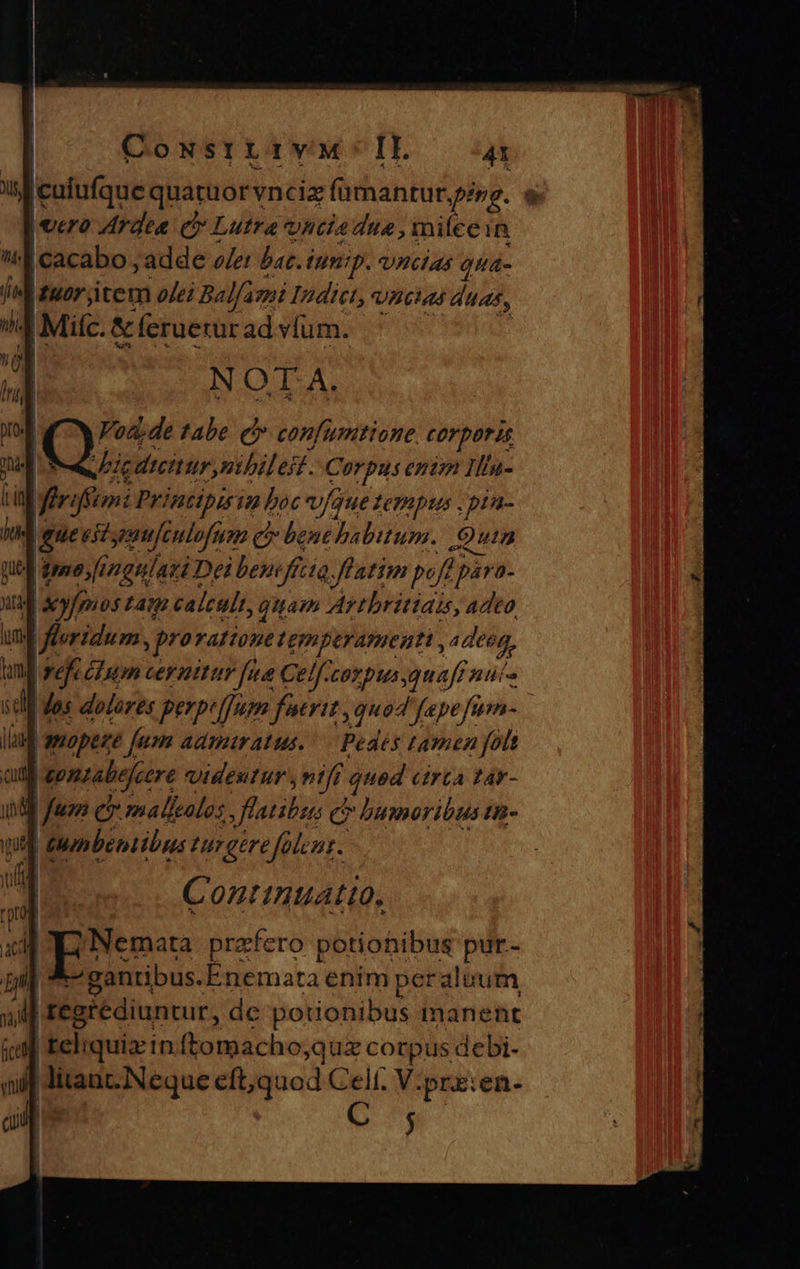 CONSILIVM II. 41
cuiuſque quatuor vnciæ ſumantur, ping.
vero Ardeæ & Lutræ vncia duæ, miſce in
cacabo, adde olei bac. iunip. vncias qua-
tuor, item olei Balſami Indici, vncias duas,
Miſc. & ſeruetur ad vſum.
NOTA.
QVod de tabe & conſumtione corporis
hic dicitur, nihil eſt. Corpus enim Illu-
ſtriſſimi Principis in hoc vſque tempus pin-
gue eſt, muſculoſum & bene habitum. Quin
imo, ſingulari Dei beneficio, ſtatim poſt paro-
xyſmos tam calculi, quam Arthritidis, adeo
floridum, pro ratione temperamenti, adeoq,
refectum cernitur ſuæ Celſ. corpus, quaſi nul-
los dolores perpeſſum fuerit, quod ſæpe ſum-
mopere ſum admiratus. Pedes tamen ſoli
contabeſcere videntur, niſi quod circa tar-
ſum & malleolos, flatibus & humoribus in-
cumbentibus turgere ſolent.
Continuatio.
ENemata præfero potionibus pur-
gantibus. Enemata enim per aluum
regrediuntur, de potionibus manent
reliquiæ in ſtomacho, quæ corpus debi-
litant. Neque eſt, quod Celſ. V. præſen-
C 5